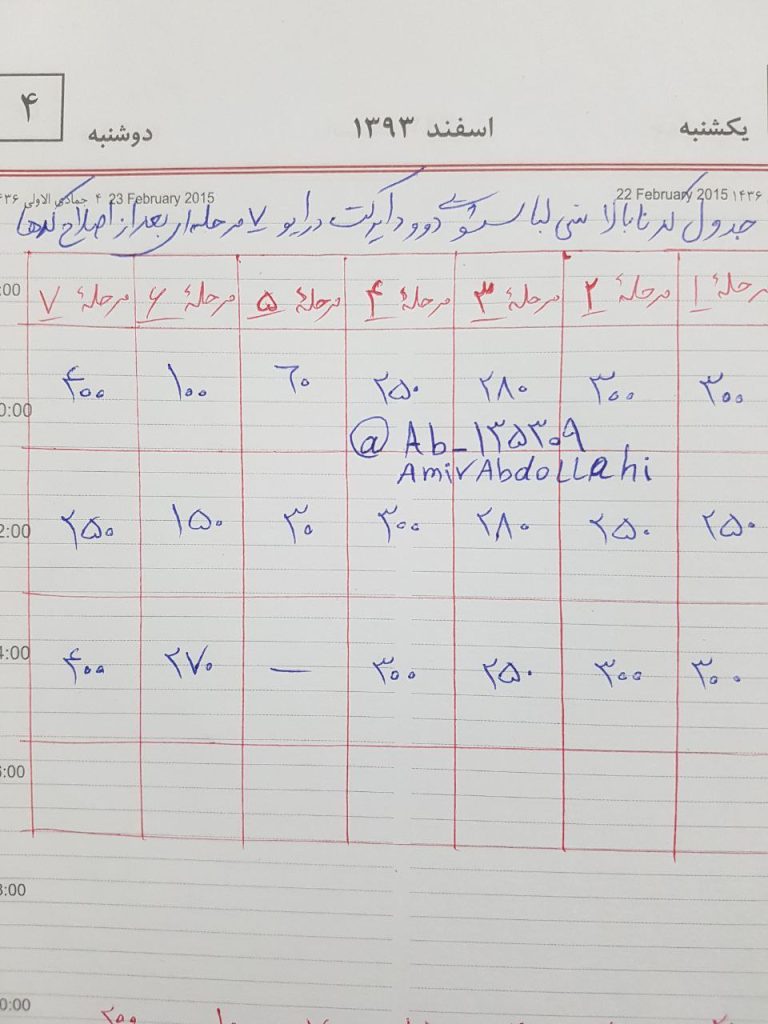 یکشنبه اسفند ۱۳۹۳ دوشنبه ۴
22 February 2015 ۱۴۳۶ ۴ جمادی الاولی 23 February 2015 ۴۳۶
جدول کدنابالانسی لباسشویی دوو دایرکت درایو ۷ مرحله‌ای بعد از اصلاح کدها
مرحلهٔ ۱ مرحلهٔ ۲ مرحلهٔ ۳ مرحلهٔ ۴ مرحلهٔ ۵ مرحلهٔ ۶ مرحلهٔ ۷
:00
۳۰۰ ۳۰۰ ۲۸۰ ۲۵۰ ۶۰ ۱۰۰ ۴۰۰
0:00
@Ab_۱۳۵۳۰۹
AmirAbdoLLahi
۲۵۰ ۲۵۰ ۲۸۰ ۳۰۰ ۳۰ ۱۵۰ ۲۵۰
2:00
۳۰۰ ۳۰۰ ۲۵۰ ۳۰۰ — ۲۷۰ ۴۰۰
4:00
6:00
8:00
0:00